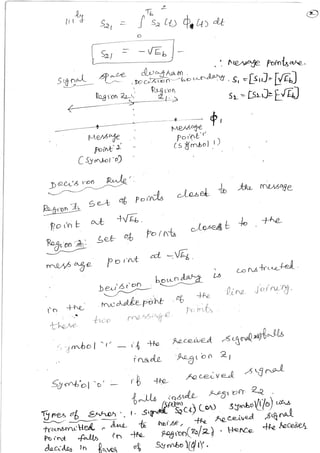 lly S₂₁ = ∫₀^Tb S₂(t) ϕ₁(t) dt
S₂₁ = -√Eb
∴ message points are
Signal space diagram S₁ = [S₁₁] = [√Eb]
Decision boundary
Region Z₂ Region Z₁ S₂ = [S₂₁] = [-√Eb]
ϕ₁
Message Message
Point '2' Point '1'
(Symbol 'o') (Symbol 1)
Decision Rule:
Region 1: Set of points closest to the message
Point at +√Eb.
Region 2: Set of points closest to the
message point at -√Eb.
Decision boundary is constructed
in the middle point of the line joining
these two message points.
Symbol '1' – if the received signal falls
inside region Z₁
Symbol 'o' – if the received signal
falls inside region Z₂
Types of Errors: 1. Signal S₂(t) (or) Symbol (1/0) was
transmitted, due to noise, the received signal
Point falls in the Region (Z₁/Z₂). Hence the receiver
decides in favor of Symbol 0/1.